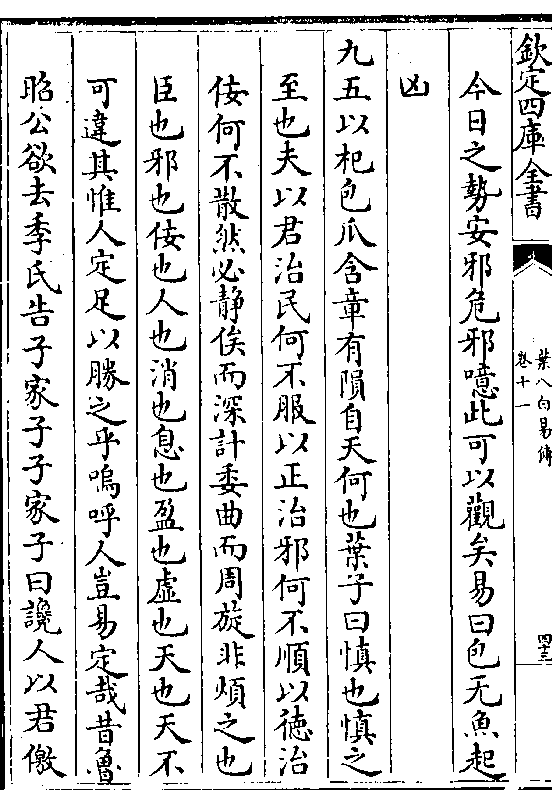 欽定四庫全書
葉八白易傳
卷十一
四十三
今日之勢安邪危邪噫此可以觀矣易曰包无魚起
凶
九五以杞包瓜含章有隕自天何也葉子曰慎也慎之
至也夫以君治民何不服以正治邪何不順以徳治
佞何不散然必靜俟而深計委曲而周旋非煩之也
臣也邪也佞也人也消也息也盈也虚也天也天不
可違其惟人定足以勝之乎嗚呼人豈易定哉昔魯
昭公欲去季氏告子家子子家子曰讒人以君儌